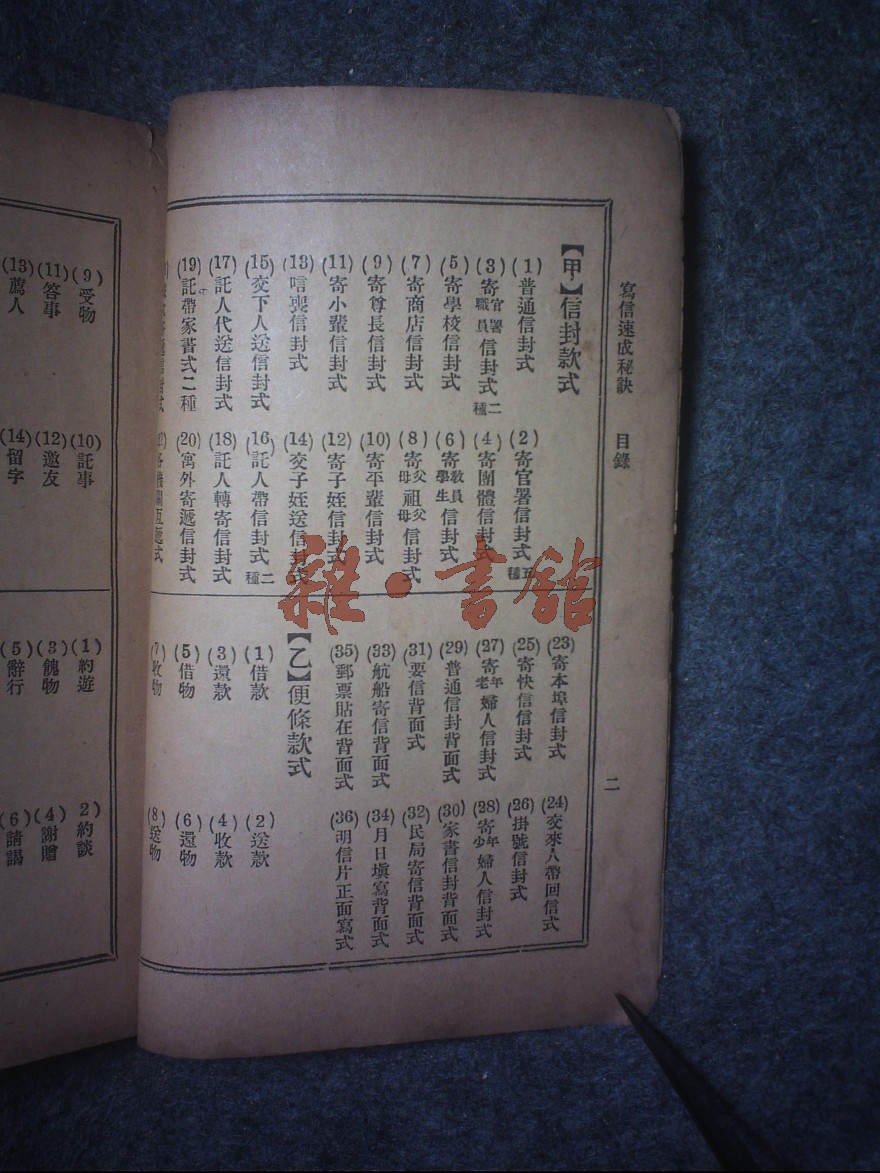 寫信速成秘訣　目錄　二
【甲】信封款式
(1)普通信封式
(2)寄官署信封式 五種
(3)寄官署職員信封式 二種
(4)寄團體信封式
(5)寄學校信封式
(6)寄教員學生信封式
(7)寄商店信封式
(8)寄父母祖父母信封式
(9)寄尊長信封式
(10)寄平輩信封式
(11)寄小輩信封式
(12)寄子姪信封式
(13)唁喪信封式
(14)交子姪送信封式
(15)交下人送信封式
(16)託人帶信封式 二種
(17)託人代送信封式
(18)託人轉寄信封式
(19)託帶家書式二種
(20)寓外寄遞信封式
(23)寄本埠信封式
(24)交來人帶回信式
(25)寄快信信封式
(26)掛號信封式
(27)寄老年婦人信封式
(28)寄少年婦人信封式
(29)普通信封背面式
(30)家書信封背面式
(31)要信背面式
(32)民局寄信背面式
(33)航船寄信背面式
(34)月日塡寫背面式
(35)郵票貼在背面式
(36)明信片正面寫式
【乙】便條款式
(1)借款
(2)送款
(3)還款
(4)收款
(5)借物
(6)還物
(7)收物
(8)送物
(9)受物
(10)託事
(11)答事
(12)邀友
(13)薦人
(14)留字
(1)約遊
2)約談
(3)餽物
(4)謝贈
(5)辭行
(6)請謁
雜·書館